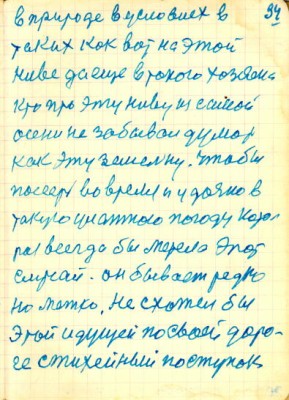 34
в природе в условиех в
таких как вот на этой
ниве да еще в такого хозяена
кто про эту ниву из самой
осени не забывал думал
как эту землину. чтобы
посеять во время и удачно в
такую погоду кото
рая всегда бы имела этот
случай. он бывает редко
но метко, не схотел бы
этой идущей по своей доро-
ге стихейный поступок